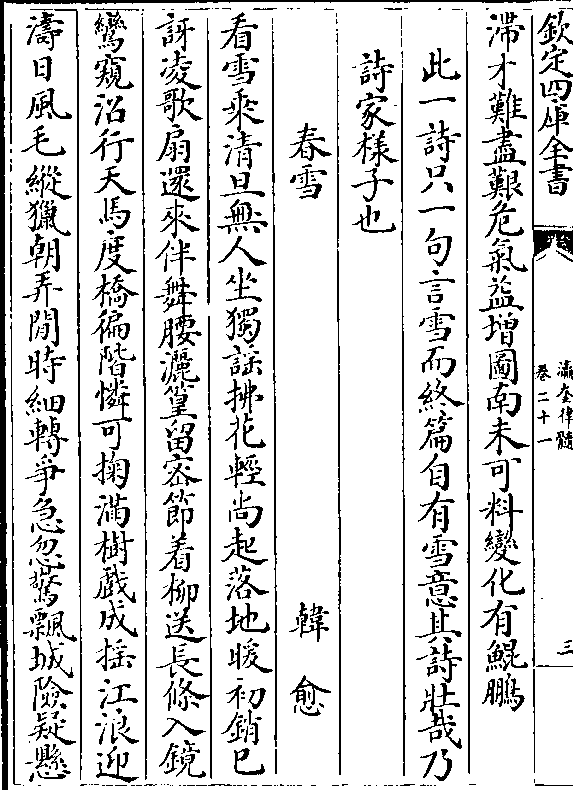 欽定四庫全書
瀛奎律髓
卷二十一
三
滯才難盡艱危氣益增圖南未可料變化有鯤鵬
此一詩只一句言雪而終篇自有雪意其詩壯哉乃
詩家樣子也
春雪 韓愈
看雪乘清旦無人坐獨謡拂花輕尚起落地暖初銷已
訝凌歌扇還來伴舞腰灑篁留宻節着柳送長條入鏡
鸞窺沼行天馬度橋徧階憐可掬滿樹戯成揺江浪迎
濤日風毛縱獵朝弄閒時細轉爭急忽驚飄城險疑懸